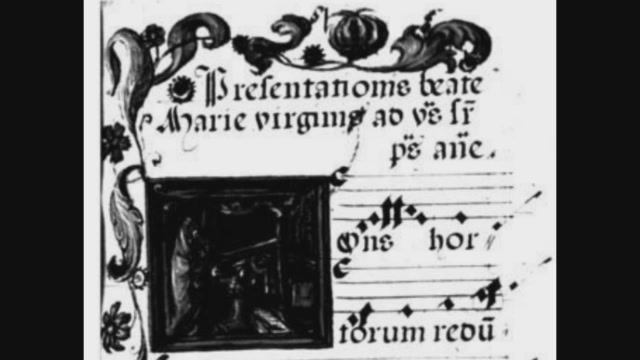 Presentationis beate
Marie virginis ad vs̄ sr̄
ps̄ añe
ons hor
torum redū